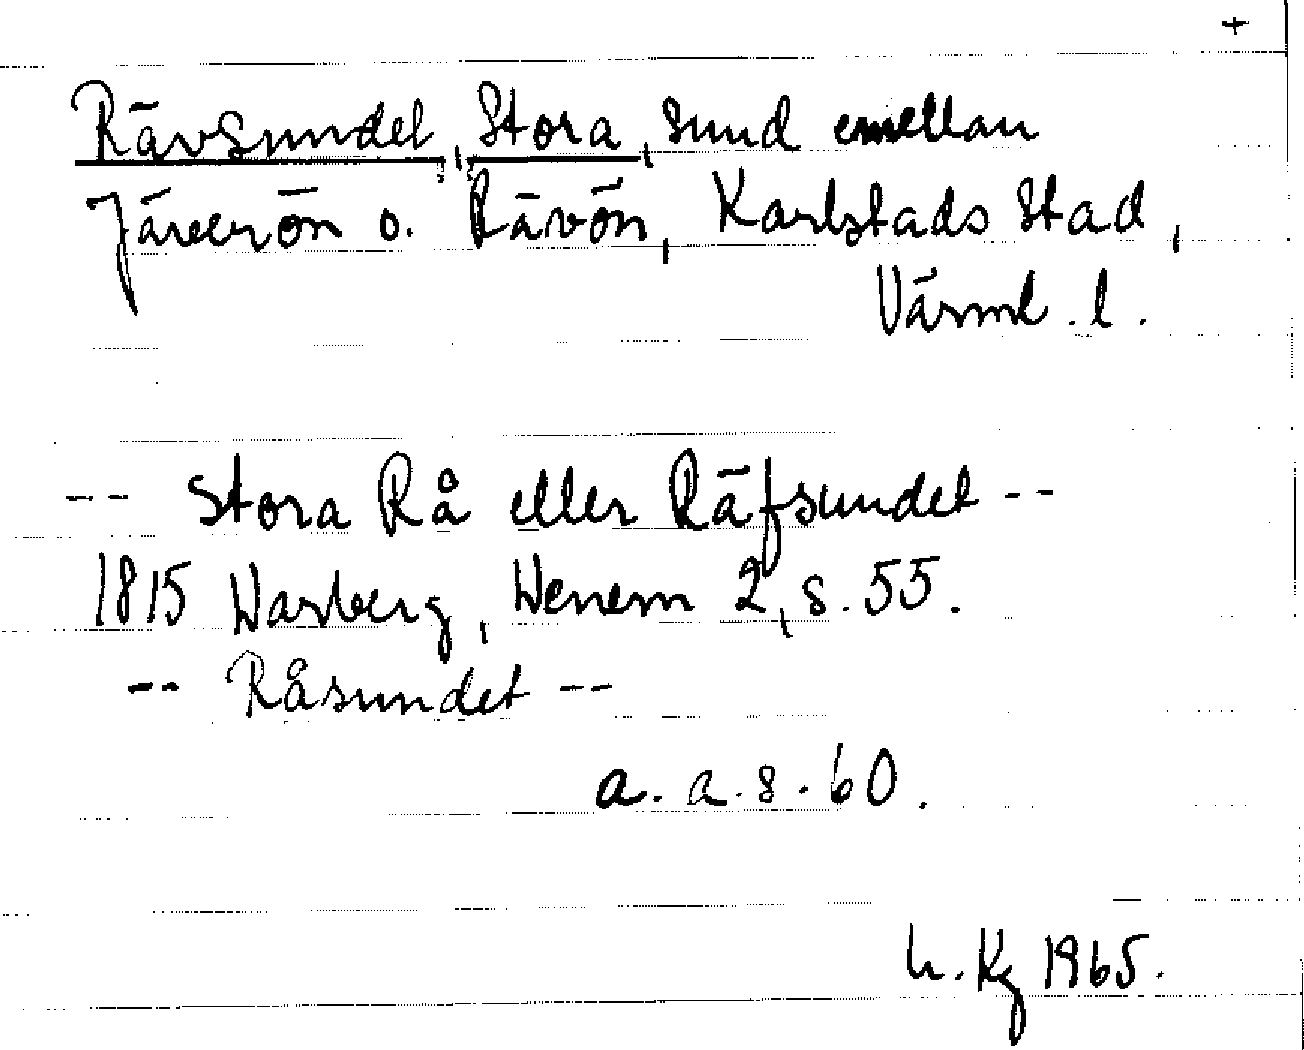 +
Rävsundet, Stora, sund emellan
Järverön o. Rävön, Karlstads Stad,
Värml. l.
-- Stora Rå eller Räfsundet --
1815 Warberg, Wenern 2, s. 55.
-- Råsundet --
a. a. s. 60.
h. Kg 1965.